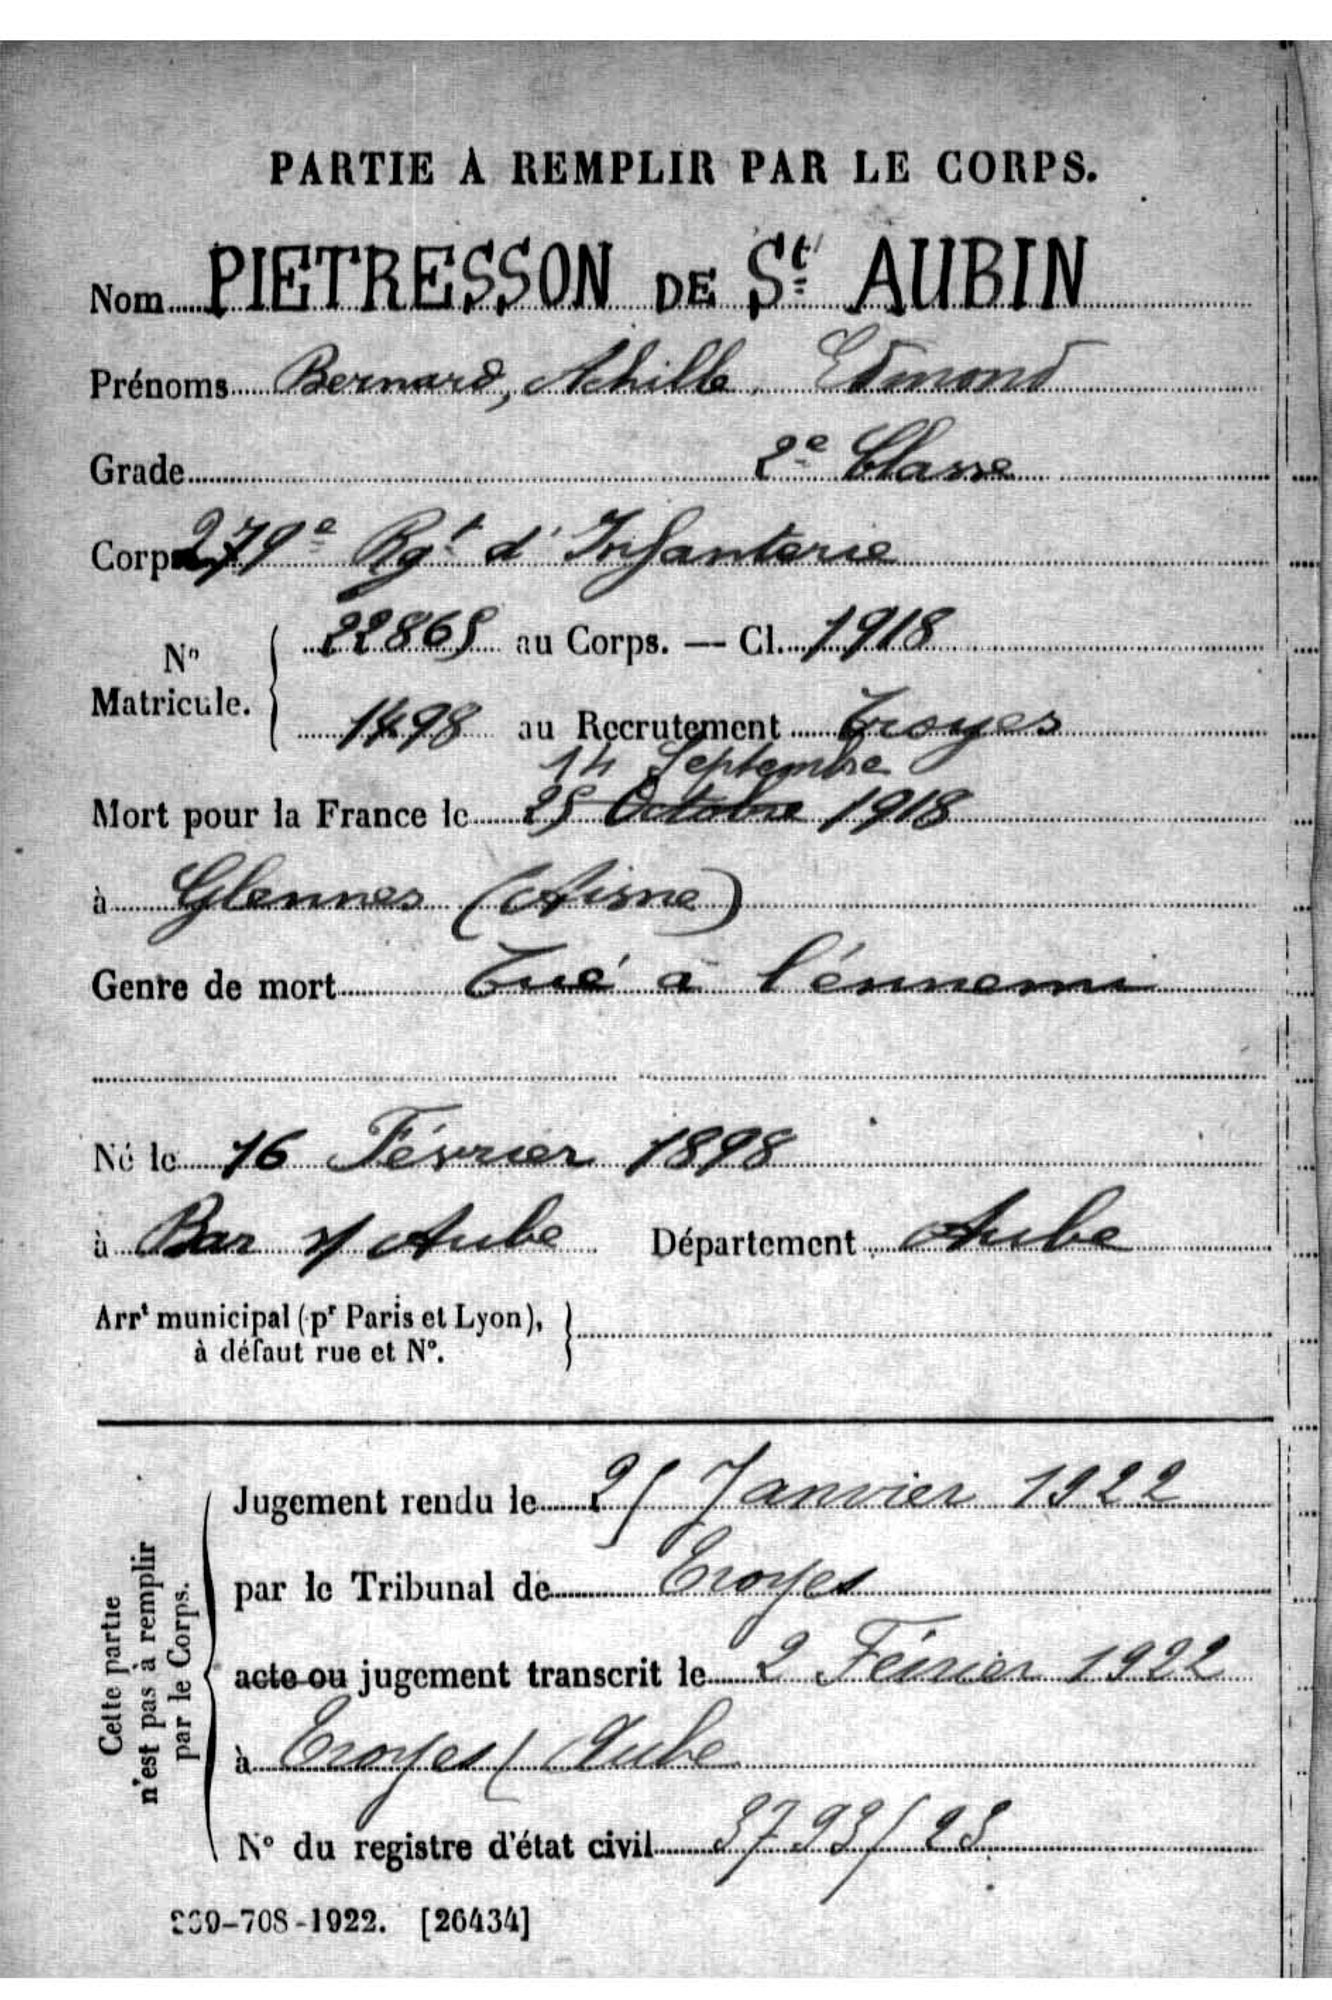 PARTIE À REMPLIR PAR LE CORPS.
Nom PIETRESSON DE St AUBIN
Prénoms Bernard, Achille, Edmond
Grade 2e Classe
Corps 279e Rgt d'Infanterie
No Matricule. 22865 au Corps. — Cl. 1918
1498 au Recrutement Troyes
14 Septembre
Mort pour la France le 25 Octobre 1918
à Glennes (Aisne)
Genre de mort Tué à l'énnemi
Né le 16 Février 1898
à Bar s/ Aube Département Aube
Arrt municipal (pr Paris et Lyon),
à défaut rue et No.
Cette partie
n'est pas à remplir
par le Corps.
Jugement rendu le 25 Janvier 1922
par le Tribunal de Troyes
acte ou jugement transcrit le 2 Février 1922
à Troyes ( Aube
No du registre d'état civil 3793/23
-708-1922. [26434]